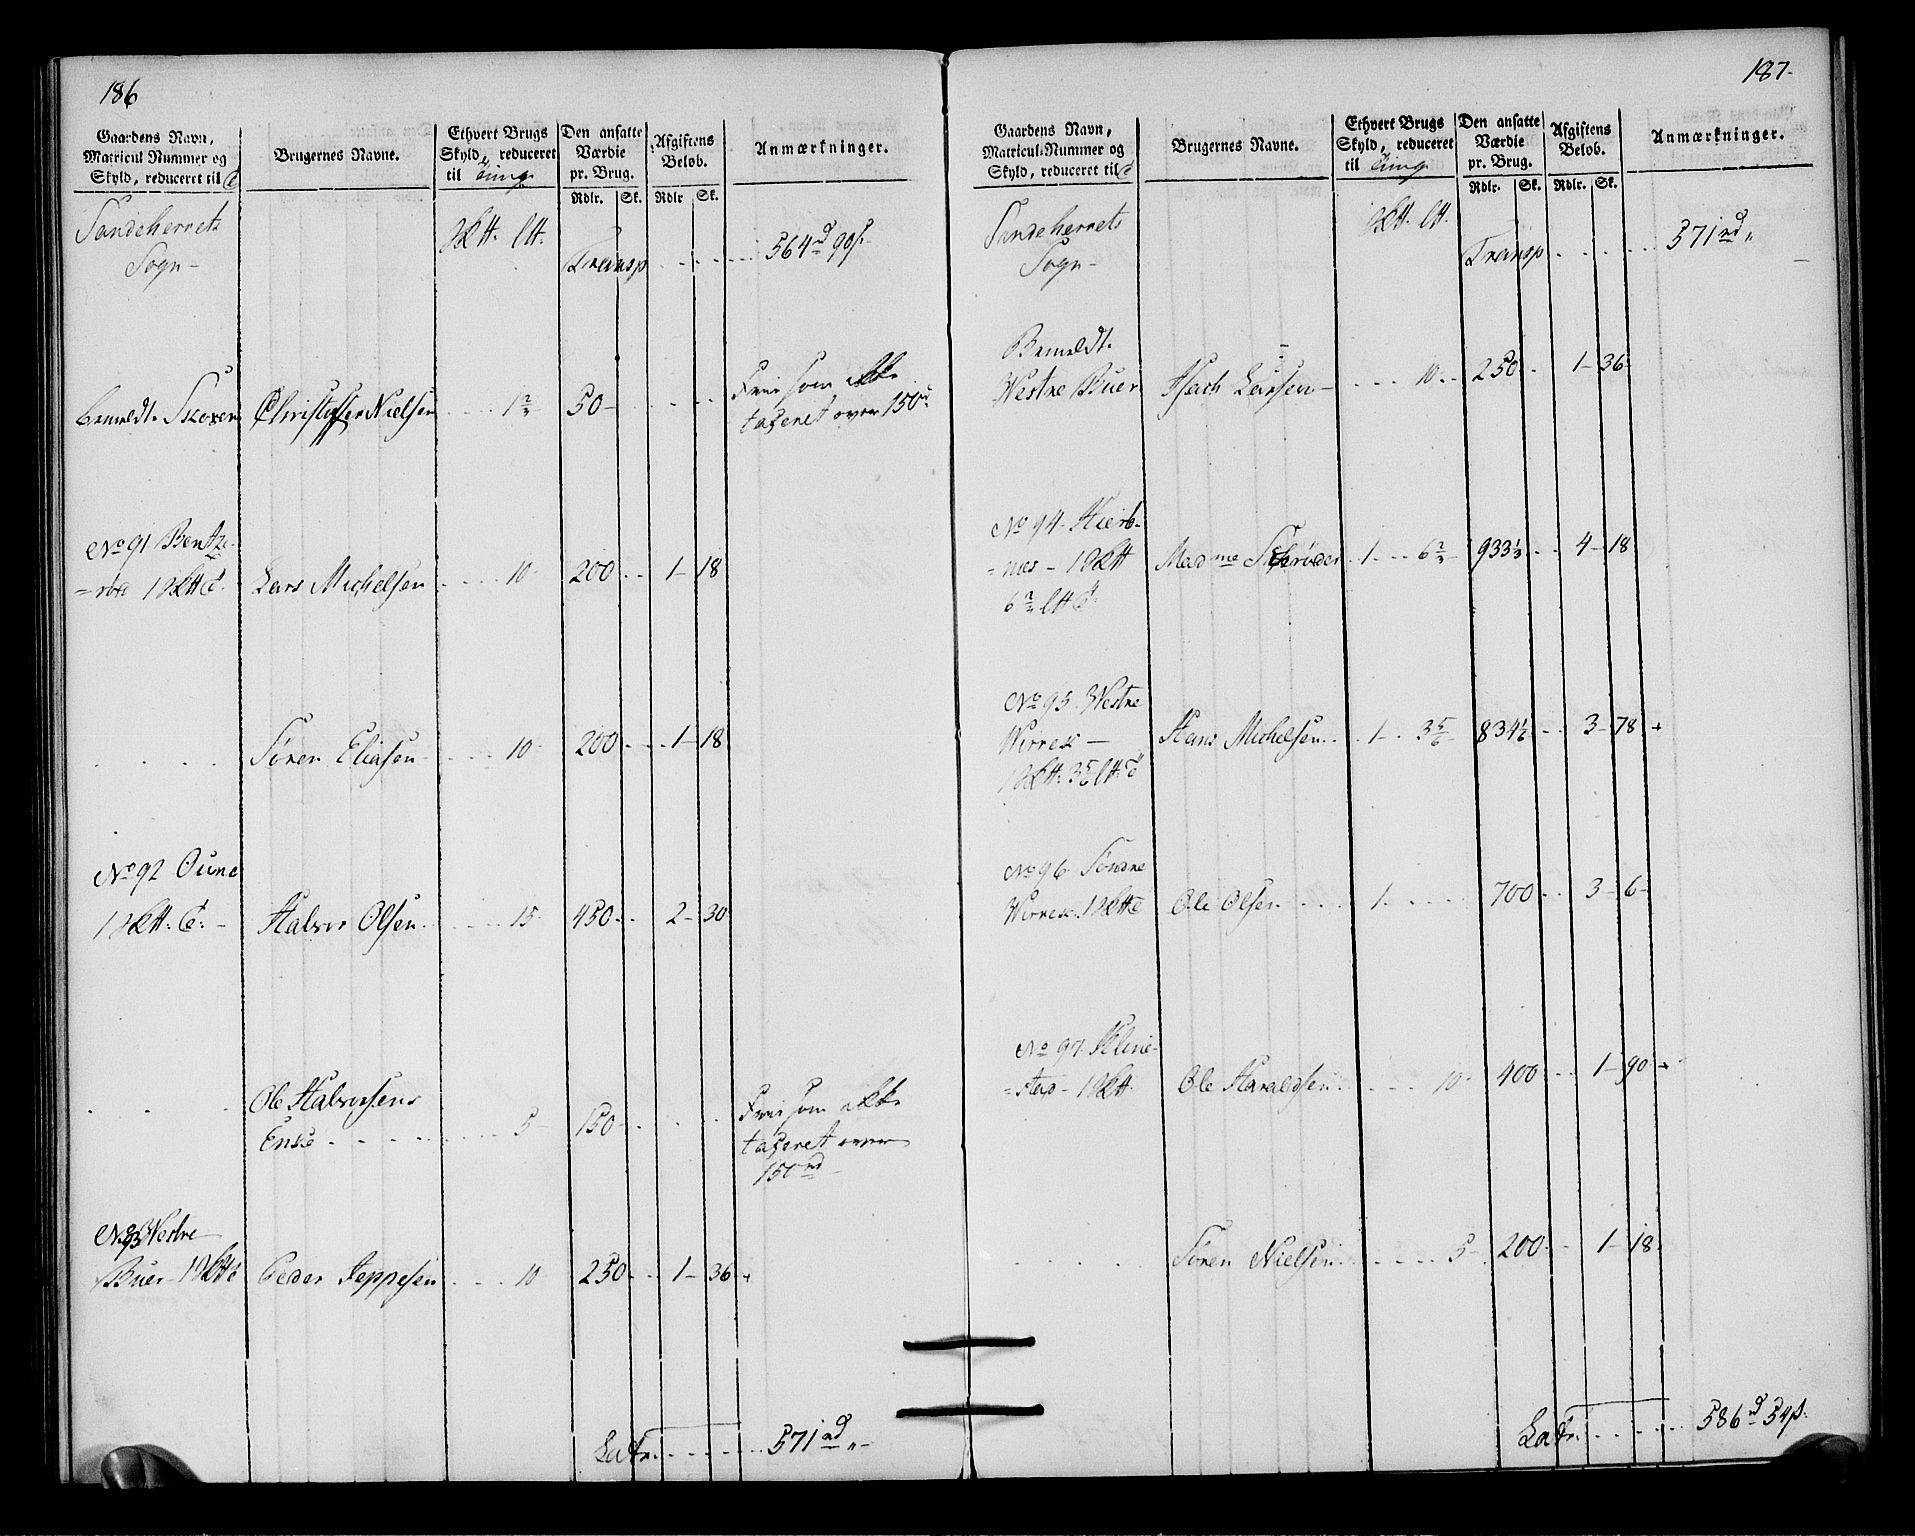 186
Gaardens Navn,
Matricul Nummer og
Skyld, reduceret til
Brugernes Navne.
Ethvert Brugs
Skyld, reduceret
til Tung
Den ansatte
Værdie
pr. Brug.
Rdlr. Sk.
Afgiftens
Beløb.
Rdlr Sk.
Anmærkninger.
Sandeherrets
Sogn
Transp 564 rd 90 s.
bemeldt Skoven Christoffer Nielsen 1 2/3 50
Frie som ikke
taxeret over 150 rd
No 91 Bentze-
=rød 1 Lars Michelsen 10 200 1 18
Søren Eliasen 10 200 1 18
No 92
1 Halvor Olsen 15 450 2 30
Ole Halvorsens
Enke 5 150
Frie som ikke
taxeret over
150 rd
No 93 Westre
Buer 1 Peder Jeppesen 10 250 1 36
Latr. 571 rd „
187
Gaardens Navn,
Matricul-Nummer og
Skyld, reduceret til
Brugernes Navne.
Ethvert Brugs
Skyld, reduceret
til Tung
Den ansatte
Værdie
pr. Brug.
Rdlr. Sk.
Afgiftens
Beløb.
Rdlr. Sk.
Anmærkninger.
Sandeherrets
Sogn
Transp 571 rd „
Bemeldt
Westre Buer Isach Larsen 10 250 1 36
No 94 Hierb-
=næs 1
6 2/3 Madme Schrøder 1 6 2/3 933 1/3 4 18
No 95 Westre
Wirrek
1 3 5/6 Hans Michelsen 1 3 5/6 834 1/6 3 78
No 96 Søndre
Wirrek 1 Ole Olsen 1 700 3 6
No 97 Kline-
=stad 1 Ole Haraldsen 10 400 1 90
Søren Nielsen 5 200 1 18
Latr. 586 rd 54 s.